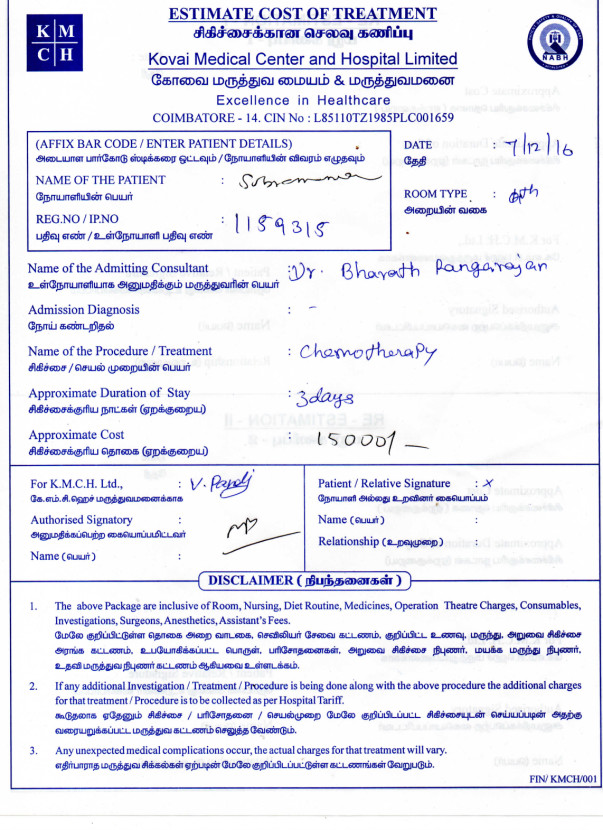 ESTIMATE COST OF TREATMENT
சிகிச்சைக்கான செலவு கணிப்பு
K M
C H
NABH
Kovai Medical Center and Hospital Limited
கோவை மருத்துவ மையம் & மருத்துவமனை
Excellence in Healthcare
COIMBATORE - 14. CIN No : L85110TZ1985PLC001659
(AFFIX BAR CODE / ENTER PATIENT DETAILS)
அடையாள பார்கோடு ஸ்டிக்கரை ஒட்டவும் / நோயாளியின் விவரம் எழுதவும்
NAME OF THE PATIENT :
நோயாளியின் பெயர்
REG.NO / IP.NO : 1159315
பதிவு எண் / உள்நோயாளி பதிவு எண்
DATE : 7/12/16
தேதி
ROOM TYPE :
அறையின் வகை
Name of the Admitting Consultant : Dr. Bharath Rangarajan
உள்நோயாளியாக அனுமதிக்கும் மருத்துவரின் பெயர்
Admission Diagnosis : -
நோய் கண்டறிதல்
Name of the Procedure / Treatment : Chemotherapy
சிகிச்சை / செயல் முறையின் பெயர்
Approximate Duration of Stay : 3days
சிகிச்சைக்குரிய நாட்கள் (ஏறக்குறைய)
Approximate Cost : 15000/-
சிகிச்சைக்குரிய தொகை (ஏறக்குறைய)
For K.M.C.H. Ltd., :
கே.எம்.சி.ஹெச் மருத்துவமனைக்காக
Authorised Signatory :
அனுமதிக்கப்பெற்ற கையொப்பமிட்டவர்
Name (பெயர்) :
Patient / Relative Signature : X
நோயாளி அல்லது உறவினர் கையொப்பம்
Name (பெயர்) :
Relationship (உறவுமுறை) :
DISCLAIMER ( நிபந்தனைகள் )
1. The above Package are inclusive of Room, Nursing, Diet Routine, Medicines, Operation Theatre Charges, Consumables,
Investigations, Surgeons, Anesthetics, Assistant's Fees.
மேலே குறிப்பிட்டுள்ள தொகை அறை வாடகை, செவிலியர் சேவை கட்டணம், குறிப்பிட்ட உணவு, மருந்து, அறுவை சிகிச்சை
அரங்க கட்டணம், உபயோகிக்கப்பட்ட பொருள், பரிசோதனைகள், அறுவை சிகிச்சை நிபுணர், மயக்க மருந்து நிபுணர்,
உதவி மருத்துவ நிபுணர் கட்டணம் ஆகியவை உள்ளடக்கம்.
2. If any additional Investigation / Treatment / Procedure is being done along with the above procedure the additional charges
for that treatment / Procedure is to be collected as per Hospital Tariff.
கூடுதலாக ஏதேனும் சிகிச்சை / பரிசோதனை / செயல்முறை மேலே குறிப்பிடப்பட்ட சிகிச்சையுடன் செய்யப்படின் அதற்கு
வரையறுக்கப்பட்ட மருத்துவ கட்டணம் செலுத்த வேண்டும்.
3. Any unexpected medical complications occur, the actual charges for that treatment will vary.
எதிர்பாராத மருத்துவ சிக்கல்கள் ஏற்படின் மேலே குறிப்பிடப்பட்டுள்ள கட்டணங்கள் வேறுபடும்.
FIN/ KMCH/001